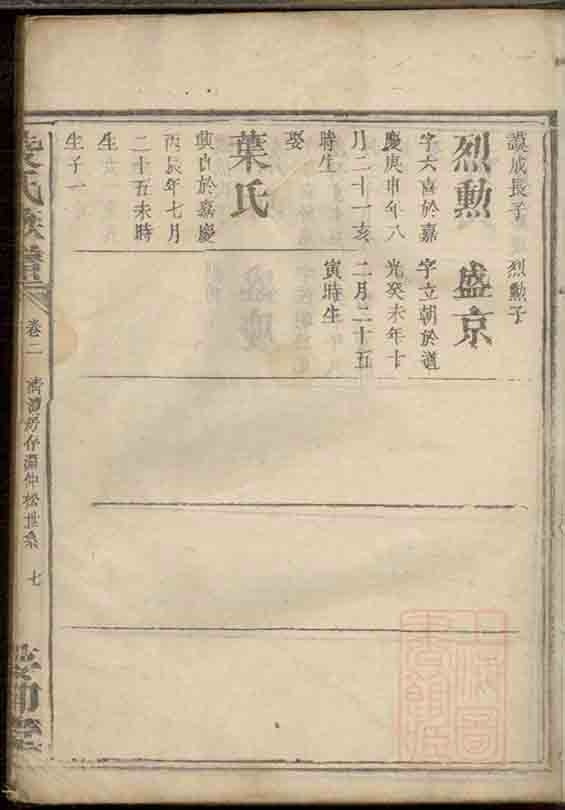 謨成長子
烈勲
字大喜於嘉
慶庚申年八
月二十一亥
時生
娶
葉氏
於嘉慶
丙辰年七月
二十五未時
生
生子一
烈勲子
盛京
字立朝於道
光癸未年十
二月二十五
寅時生
氏族譜
卷二
仲松世系
七